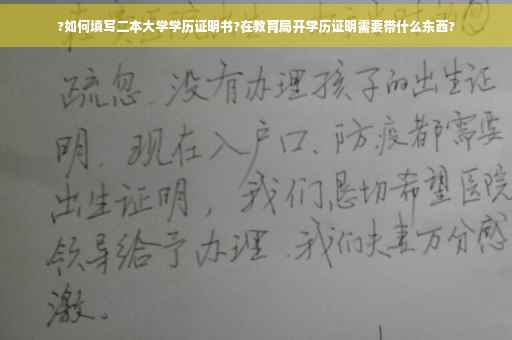 ?如何填写二本大学学历证明书?在教育局开学历证明需要带什么东西?
疏忽、没有办理孩子的出生证
明、现在入户口、防疫都需要
出生证明，我们恳切希望医院
领导给予办理、我们夫妻万分感
激。